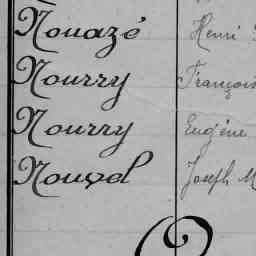 Nouazé Henri
Nourry François
Nourry Eugène
Nouvel Joseph M